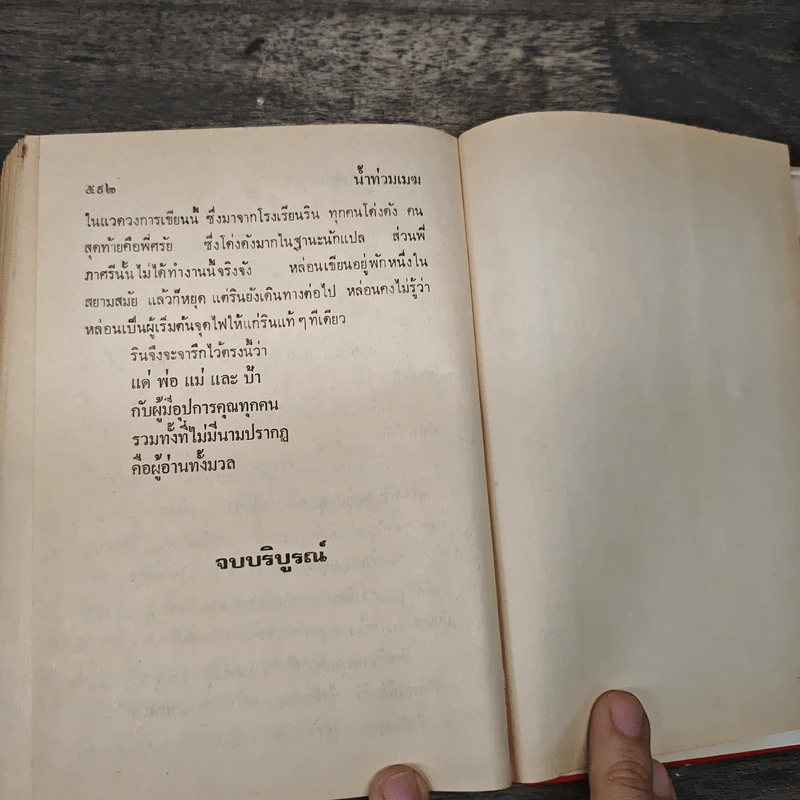 ๕๙๒ น้ำท่วมเมฆ
ในแวดวงการเขียนนี้ ซึ่งมาจากโรงเรียนริน ทุกคนโด่งดัง คน
สุดท้ายคือพี่ศรัย ซึ่งโด่งดังมากในฐานะนักแปล ส่วนพี่
ภาศรีนั้นไม่ได้ทำงานนี้จริงจัง หล่อนเขียนอยู่พักหนึ่งใน
สยามสมัย แล้วก็หยุด แต่รินยังเดินทางต่อไป หล่อนคงไม่รู้ว่า
หล่อนเป็นผู้เริ่มต้นจุดไฟให้แก่รินแท้ ๆ ทีเดียว
รินจึงจะจารึกไว้ตรงนี้ว่า
แด่ พ่อ แม่ และ ป้า
กับผู้มีอุปการคุณทุกคน
รวมทั้งที่ไม่มีนามปรากฏ
คือผู้อ่านทั้งมวล
จบบริบูรณ์